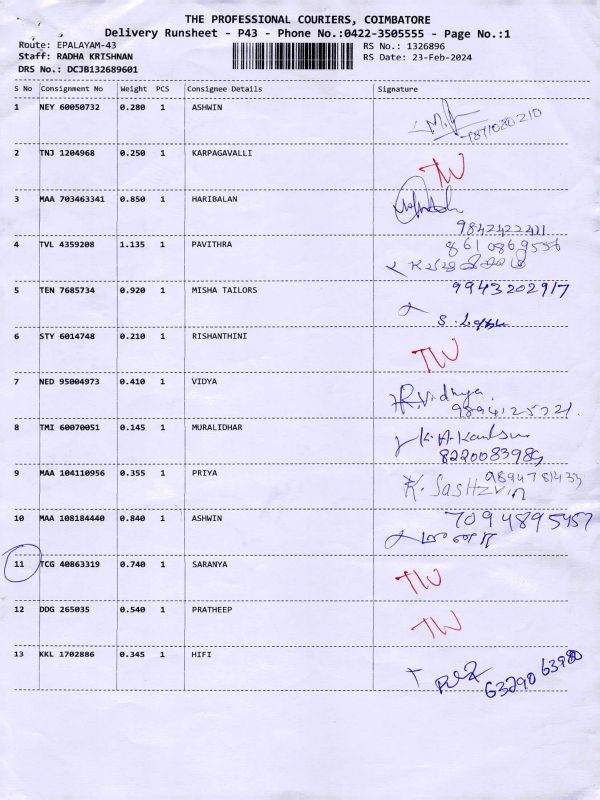 THE PROFESSIONAL COURIERS, COIMBATORE
Delivery Runsheet - P43 - Phone No.:0422-3505555 - Page No.:1
Route: EPALAYAM-43 RS No.: 1326896
Staff: RADHA KRISHNAN RS Date: 23-Feb-2024
DRS No.: DCJB132689601
S No Consignment No Weight PCS Consignee Details Signature
1 NEY 60050732 0.280 1 ASHWIN
2 TNJ 1204968 0.250 1 KARPAGAVALLI TW
3 MAA 703463341 0.850 1 HARIBALAN
9842422411
4 TVL 4359208 1.135 1 PAVITHRA 8610869556
5 TEN 7685734 0.920 1 MISHA TAILORS 9943202917
6 STY 6014748 0.210 1 RISHANTHINI TW
7 NED 95004973 0.410 1 VIDYA R.Vidhya.
8 TMI 60070051 0.145 1 MURALIDHAR
8220083989
9 MAA 104110956 0.355 1 PRIYA 9894781433
10 MAA 108184440 0.840 1 ASHWIN 7094895457
11 TCG 40863319 0.740 1 SARANYA TW
12 DDG 265035 0.540 1 PRATHEEP TW
13 KKL 1702886 0.345 1 HIFI
63290 63980